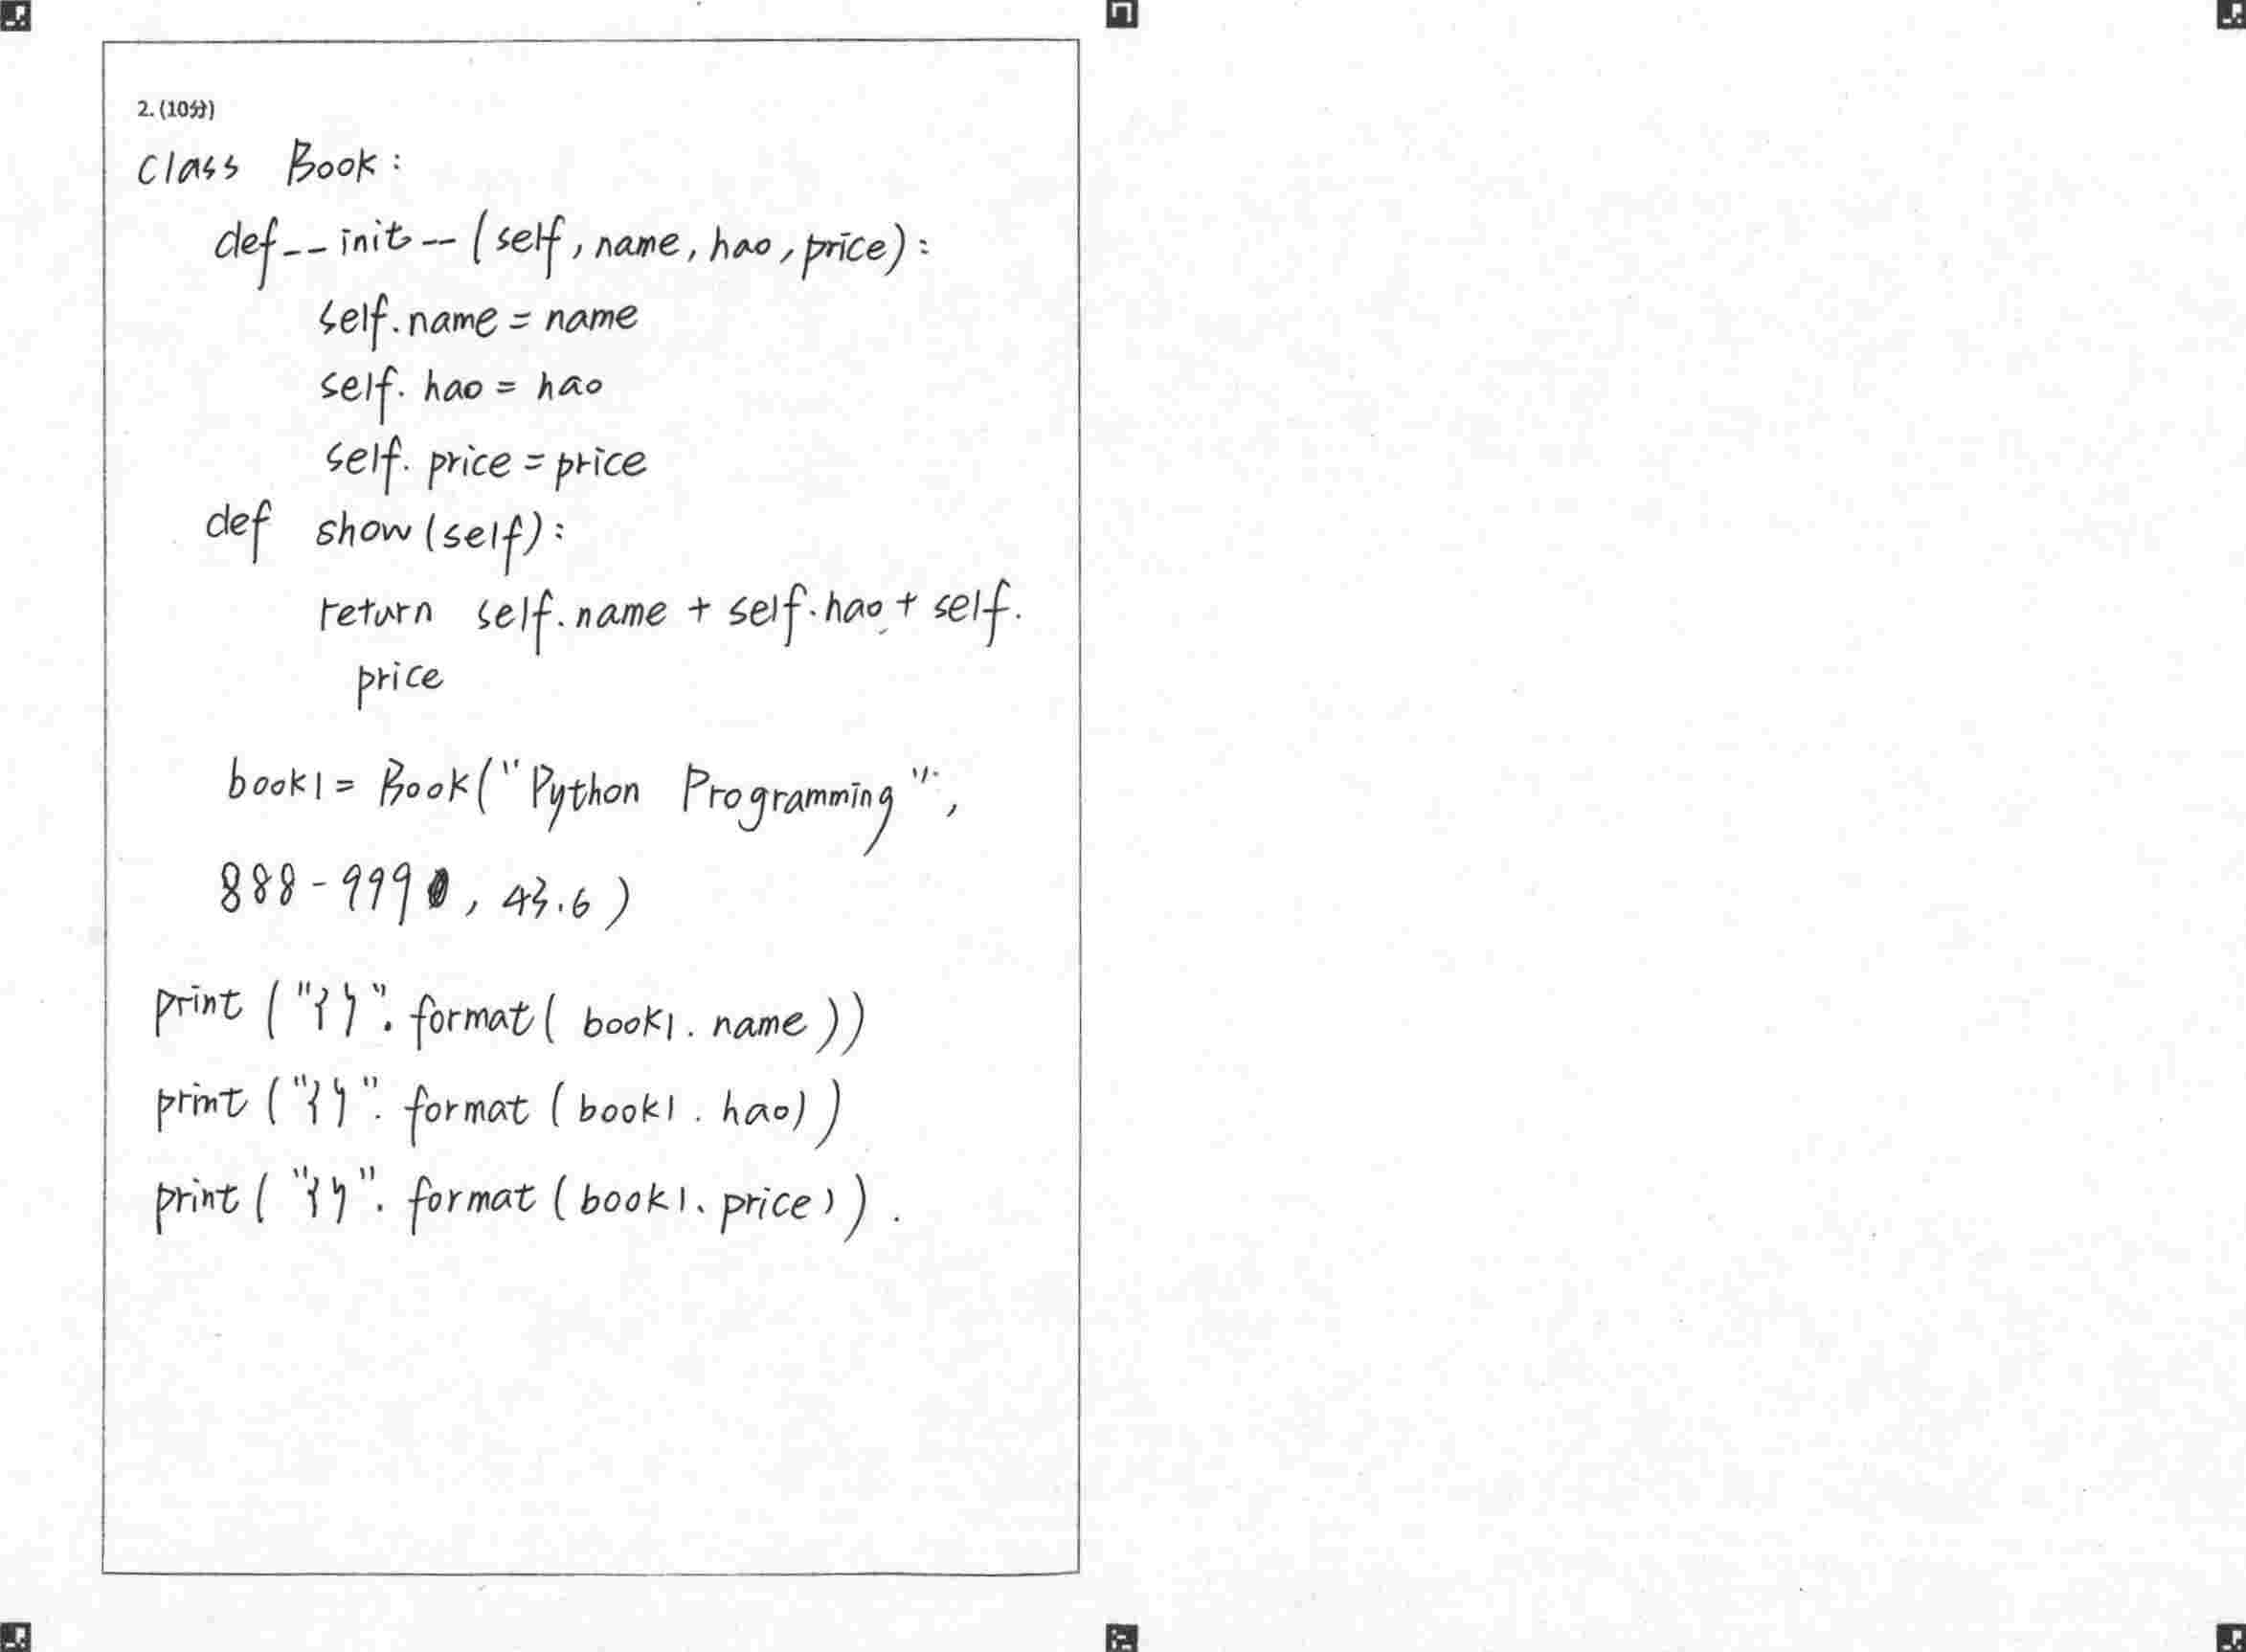 2. (10分)
class Book:
def __init__(self, name, hao, price):
self.name = name
self.hao = hao
self.price = price
def show(self):
return self.name + self.hao + self.
price
book1 = Book("Python Programming",
888-999, 43.6)
print("{}".format(book1.name))
print("{}".format(book1.hao))
print("{}".format(book1.price)).